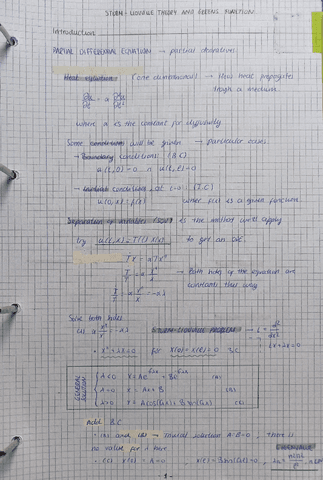 STURM-LIOUVILLE THEORY AND GREEN'S FUNCTION
Introduction
PARTIAL DIFFERENTIAL EQUATION → partial derivatives
Heat equation (one dimensional) → How heat propagates
a medium.
∂u/∂t = α ∂²u/∂x²
where α is the constant for diffusivity
Some conditions will be given → particular cases:
→ Boundary conditions (B.C)
u(t,0)=0 n u(t,ℓ)=0
→ Initial conditions at t=0: (I.C)
u(0,x)=f(x) where f(x) is a given function
Separation of variables is the method we'll applying
Try u(t,x)=T(t)X(x) to get an
T'X = αTX''
T'/T = α X''/X → Both sides of the equation are
constants that way
T'/T = α X''/X = -αλ
Solve both sides
(a) α X''/X = -αλ STURM-LIOUVILLE PROBLEM → L = d²/dx²
• X''+λX=0 for X(0)=X(ℓ)=0 B.C LX+λX=0
GENERAL SOLUTION
λ<0
λ=0 X=Ax+B
λ>0
Add B.C
• trivial solution A=B=0, there is
no value for λ here
X(0)=A=0
-1-